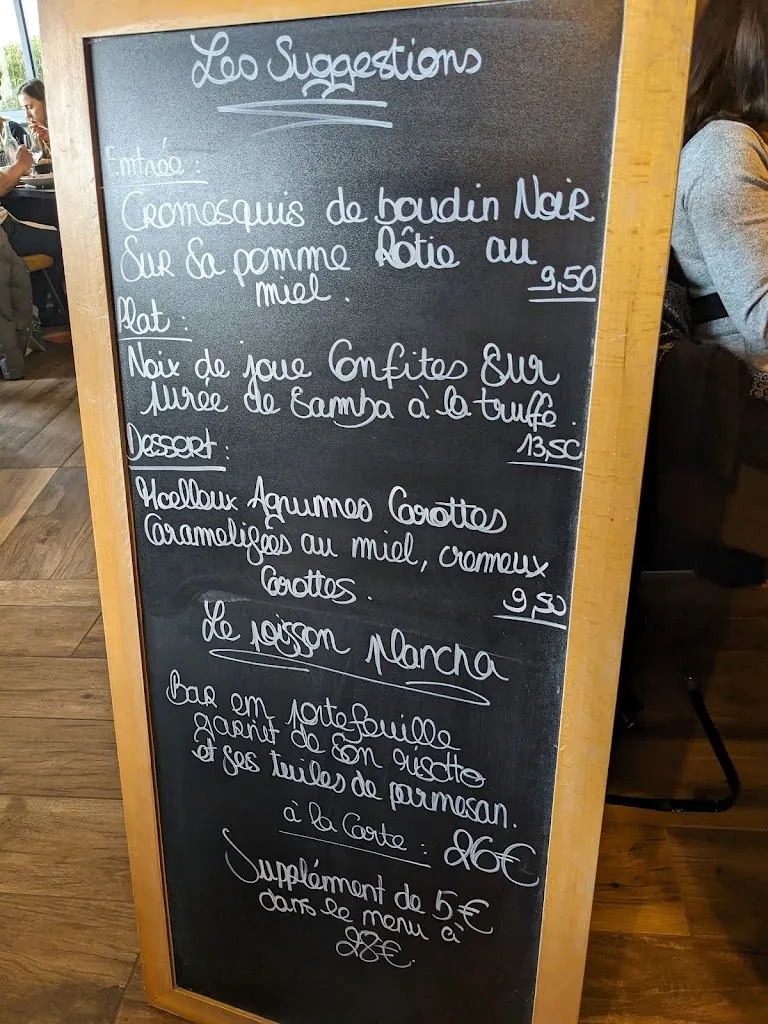 Les Suggestions
Entrée :
Cromesquis de boudin Noir
Sur Sa pomme Rôtie au
miel.
9,50
Plat :
Noix de joue Confites Sur
purée de Samba à la truffe.
13,50
Dessert :
Moelleux Agrumes Carottes
Caramelizées au miel, cremeux
Carottes.
9,50
Le poisson plancha
Bar em portefeuille
garnit de Son risotto
et Ses tuiles de parmesan.
à la Carte : 26€
Supplément de 5€
dans le menu à
28€.